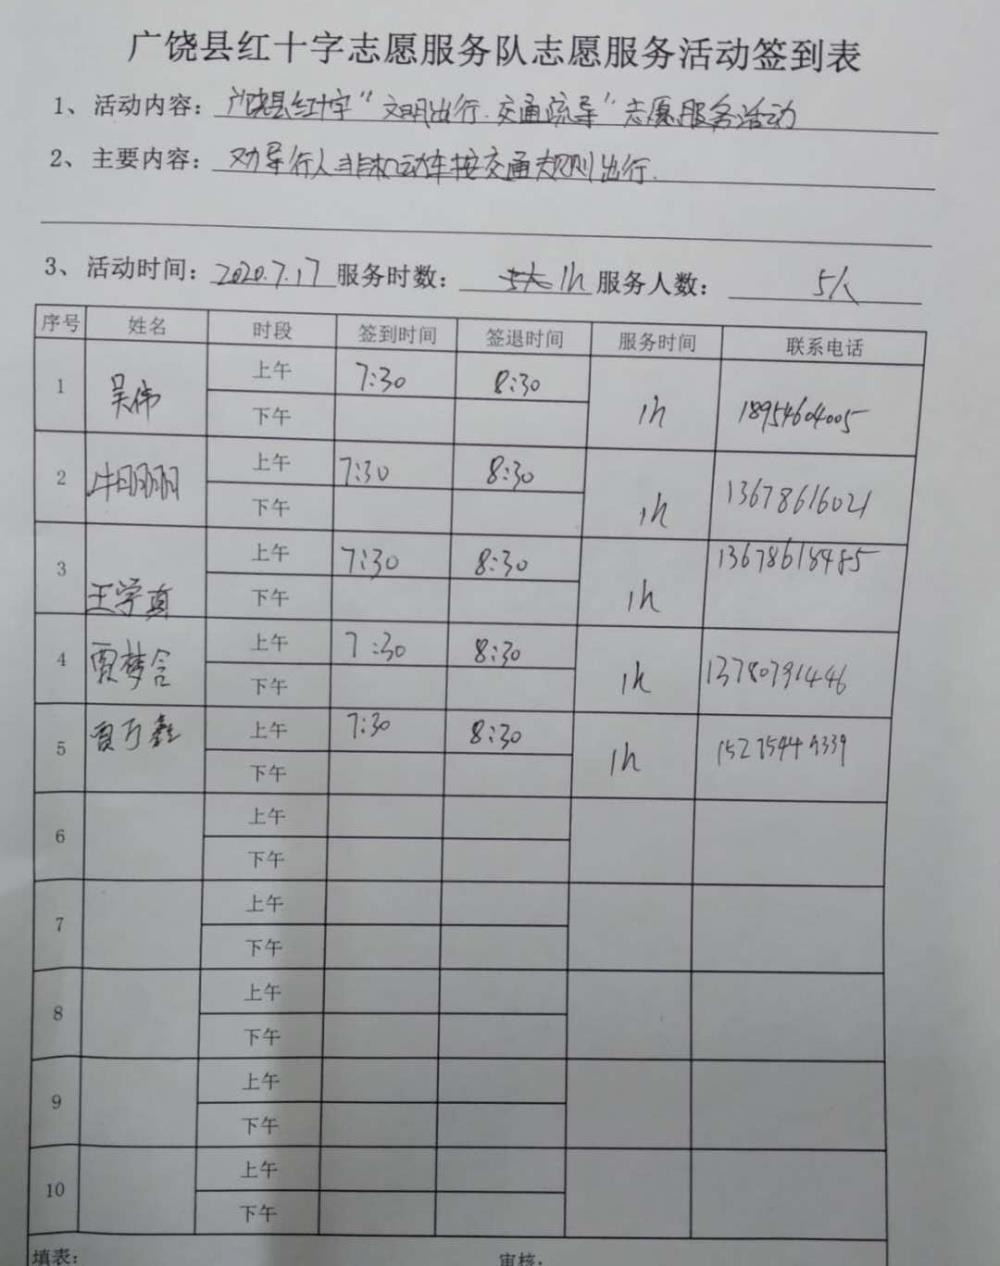 广饶县红十字志愿服务队志愿服务活动签到表
1、活动内容：广饶县红十字“文明出行.交通疏导”志愿服务活动
2、主要内容：劝导行人非机动车按交通规则出行.
3、活动时间：2020.7.17 服务时数： 1h 服务人数： 5人
序号 姓名 时段 签到时间 签退时间 服务时间 联系电话
1 吴伟 上午 7:30 8:30 1h 18954604005
下午
2 牛丽丽 上午 7:30 8:30 1h 13678616021
下午
3 王学真 上午 7:30 8:30 1h 13678618485
下午
4 贾梦含 上午 7:30 8:30 1h 13780791446
下午
5 上午 7:30 8:30 1h 15275449339
下午
6 上午
下午
7 上午
下午
8 上午
下午
9 上午
下午
10 上午
下午
填表： 审核：